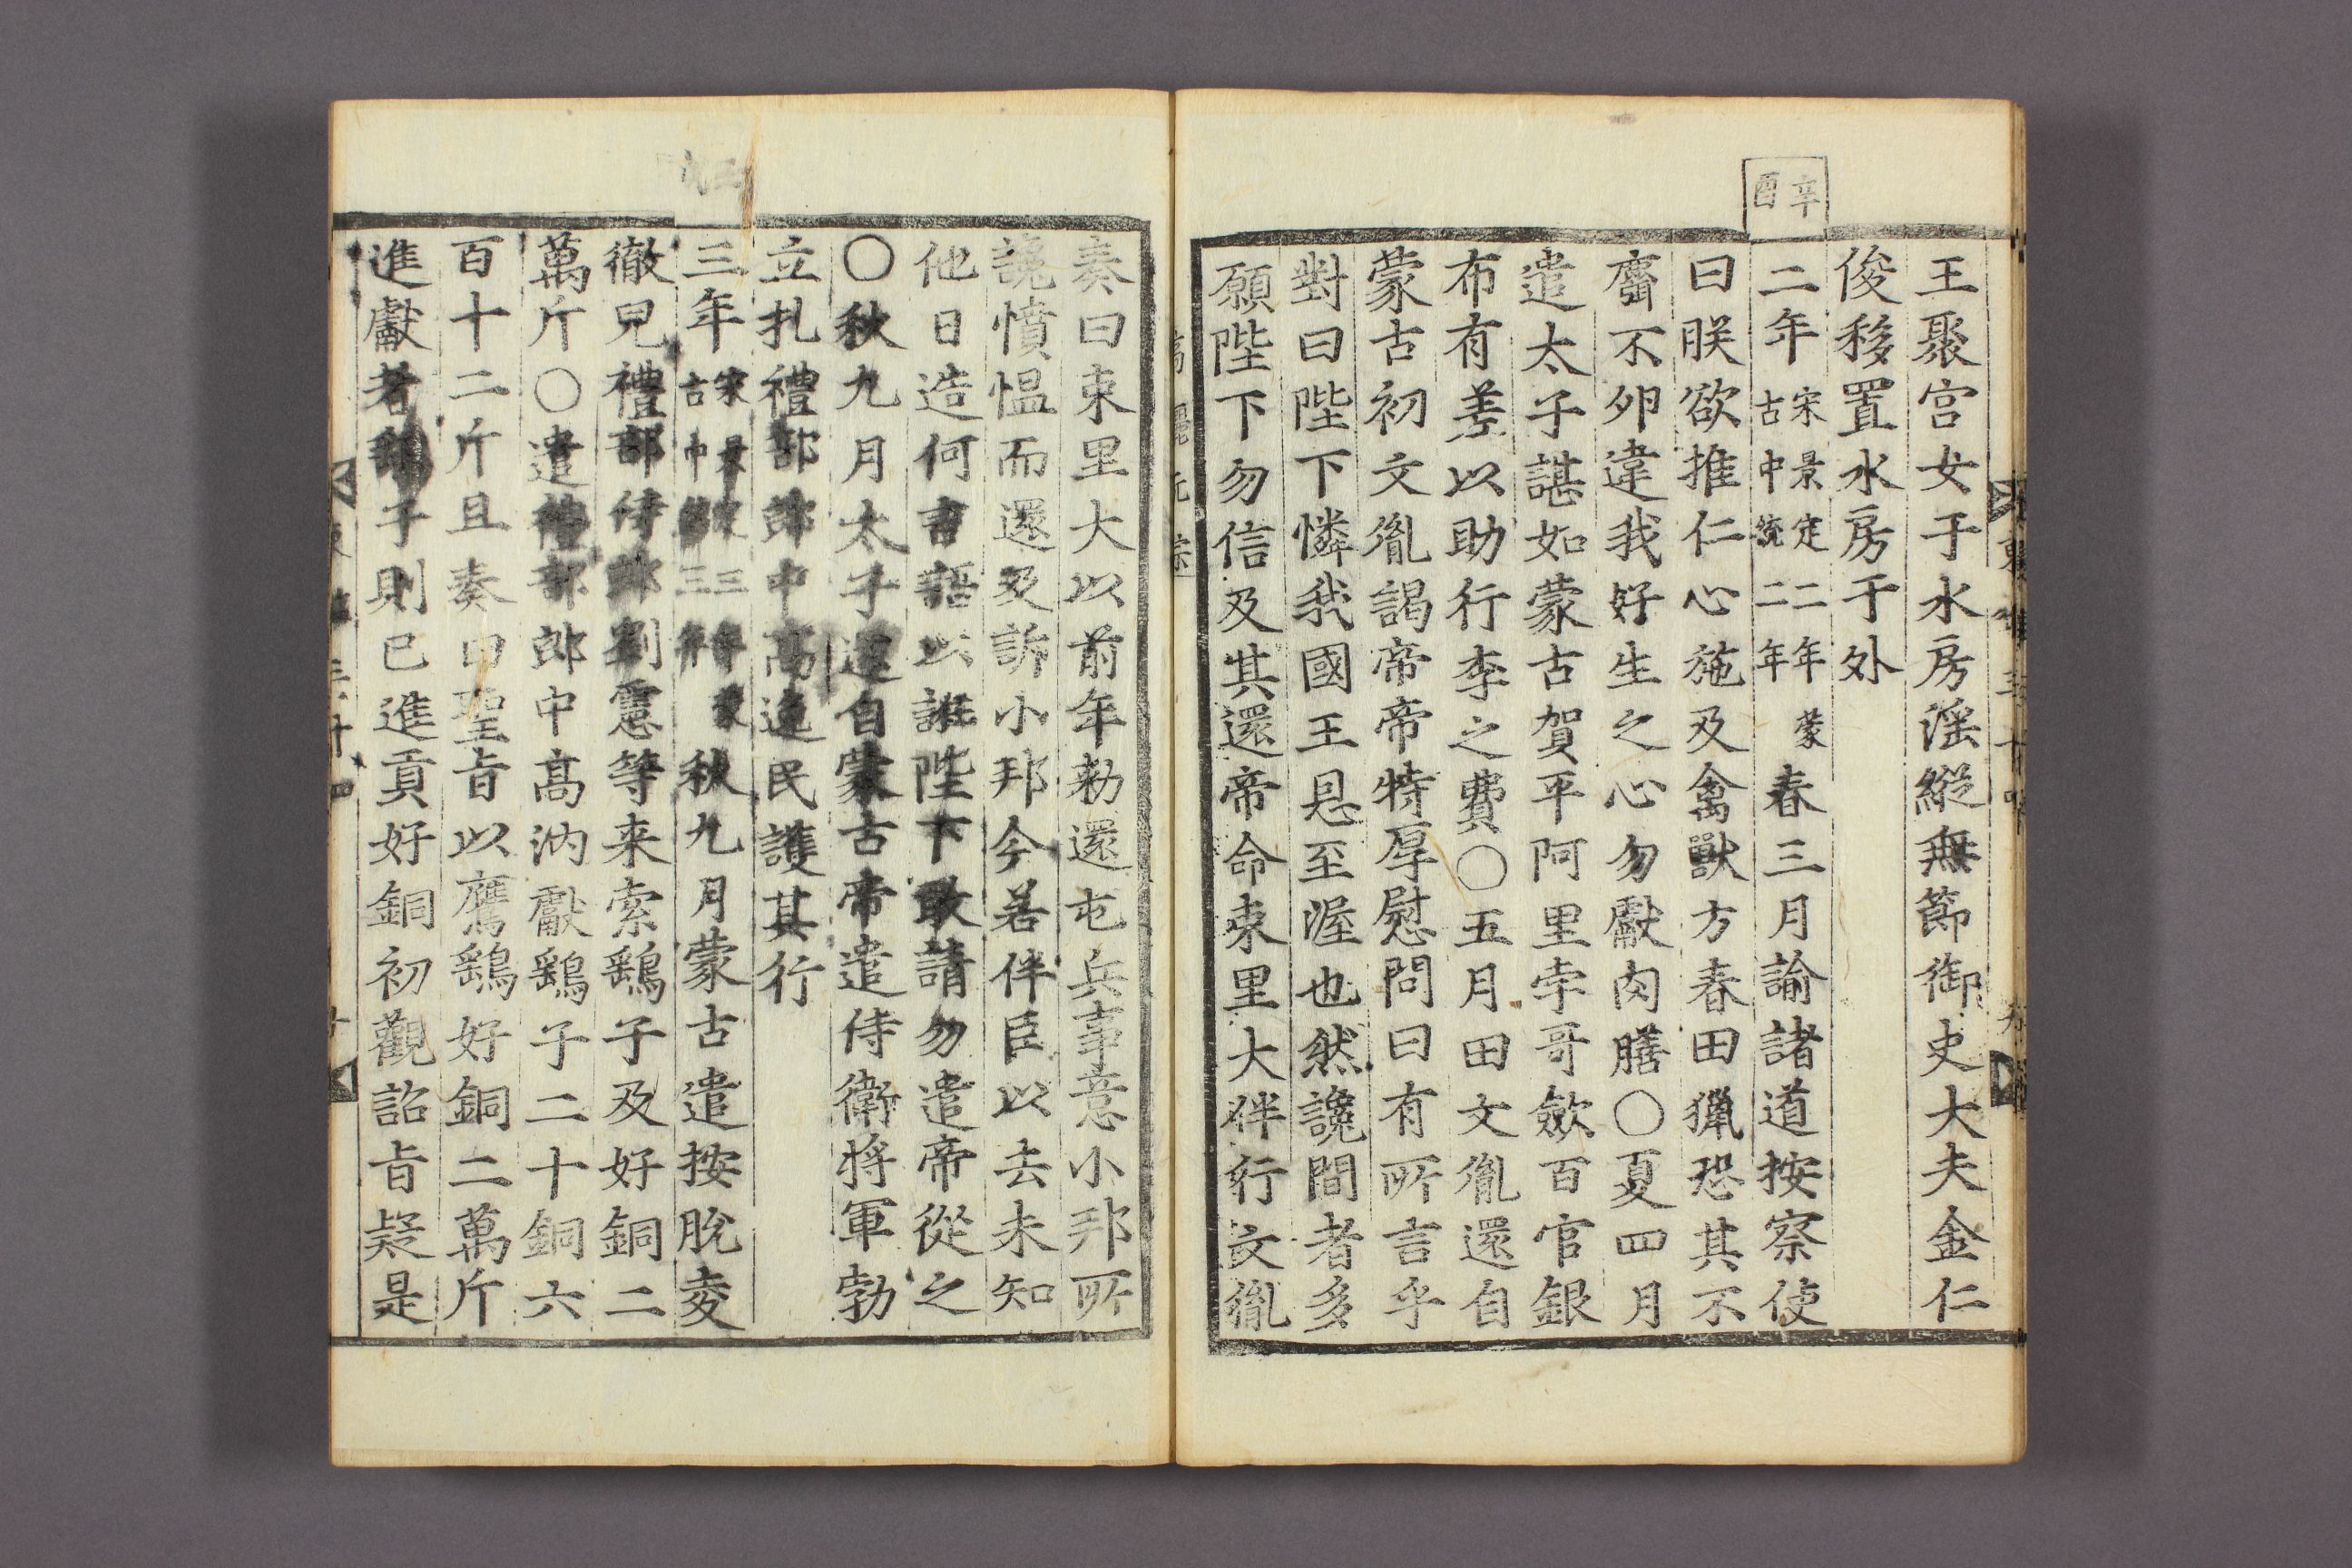 辛酉
王聚宮女于水房淫縱無節御史大夫金仁
俊移置水房于外
二年宋景定二年蒙古中統二年春三月諭諸道按察使
曰朕欲推仁心施及禽獸方春田獵恐其不
麛不卵違我好生之心勿獻肉膳○夏四月
遣太子諶如蒙古賀平阿里孛哥斂百官銀
布有差以助行李之費○五月田文胤還自
蒙古初文胤謁帝帝特厚慰問曰有所言乎
對曰陛下憐我國王恩至渥也然讒間者多
願陛下勿信及其還帝命束里大伴行文胤
高麗元宗
奏曰束里大以前年勑還屯兵事意小邦所
讒憤愠而還又訴小邦今若伴臣以去未知
他日造何書語以誑陛下敢請勿遣帝從之
○秋九月太子還自蒙古帝遣侍衛將軍勃
立扎禮部郎中高逸民護其行
三年宋景定三年蒙古中統三年秋九月蒙古遣按脫夌
徹兒禮部侍郎劉憲等来索鷂子及好銅二
萬斤○遣禮部郎中高汭獻鷂子二十銅六
百十二斤且奏曰聖旨以鷹鷂好銅二萬斤
進獻者鷂子則已進貢好銅初觀詔旨疑是